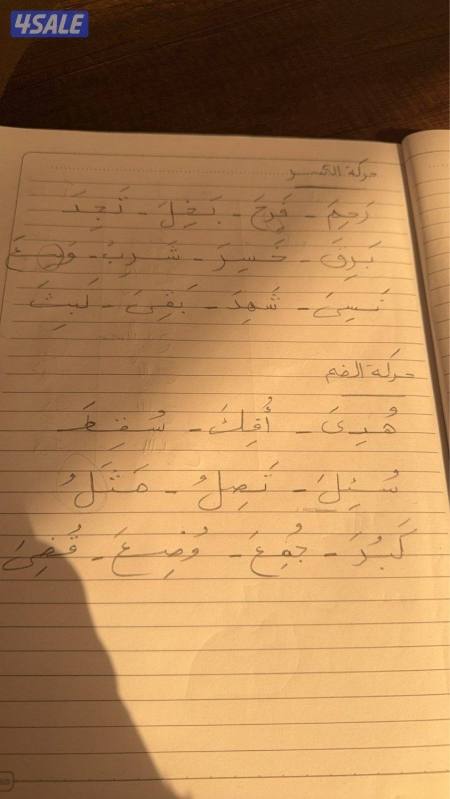 4SALE
حركة الكسر
رَحِمَ - فَرِحَ - بَخِلَ - تَجِدَ
بَرِقَ - خَسِرَ - شَرِبُ - وَسِعَ
نَسِىَ - شَهِدَ - بَقِىَ - لَبِثَ
حركة الضم
هُدِىَ - أُفِكَ - سُقِطَ
سُئِلَ - تَصِلُ - مَثَلُ
كَبُرَ - جُمِعَ - وُضِعَ - قُضِىَ